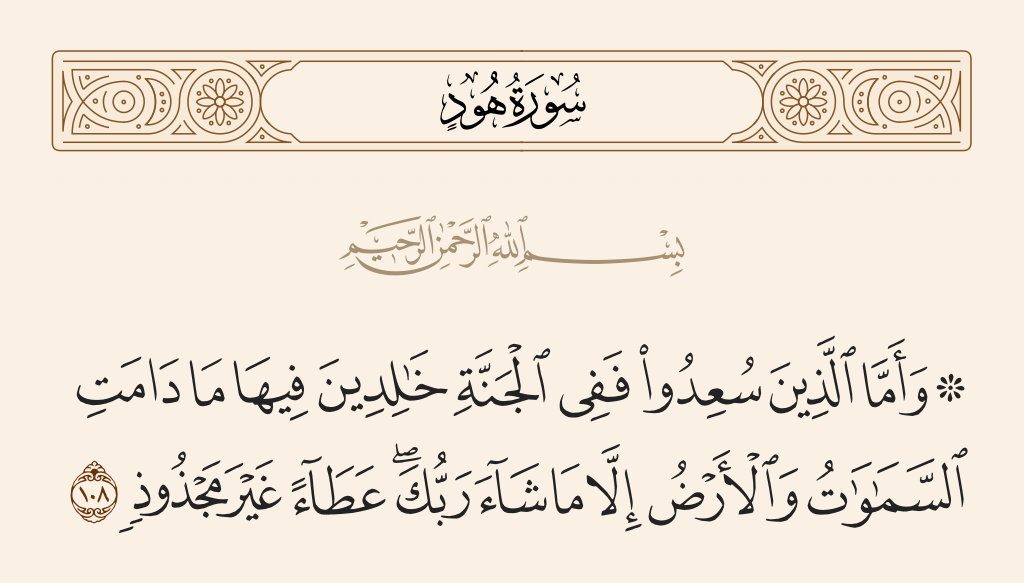 سُورَةُ هُودٍ
بِسْمِ ٱللَّهِ ٱلرَّحْمَٰنِ ٱلرَّحِيمِ
۞ وَأَمَّا ٱلَّذِينَ سُعِدُوا۟ فَفِى ٱلْجَنَّةِ خَٰلِدِينَ فِيهَا مَا دَامَتِ
ٱلسَّمَٰوَٰتُ وَٱلْأَرْضُ إِلَّا مَا شَآءَ رَبُّكَ ۖ عَطَآءً غَيْرَ مَجْذُوذٍ ١٠٨